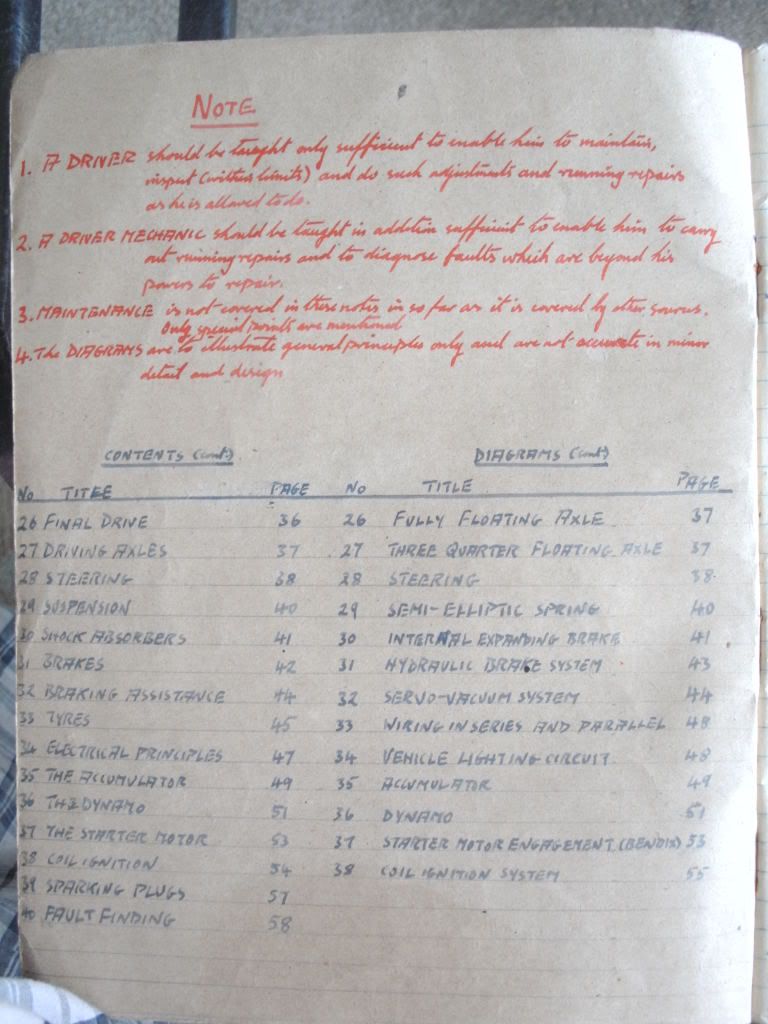 NOTE
1. A DRIVER should be taught only sufficient to enable him to maintain,
inspect (within limits) and do such adjustments and running repairs
as he is allowed to do.
2. A DRIVER MECHANIC should be taught in addition sufficient to enable him to carry
out running repairs and to diagnose faults which are beyond his
powers to repair.
3. MAINTENANCE is not covered in these notes in so far as it is covered by other sources.
Only special points are mentioned
4. The DIAGRAMS are to illustrate general principles only and are not accurate in minor
detail and design
CONTENTS (cont.) DIAGRAMS (cont)
No TITLE PAGE NO TITLE PAGE
26 FINAL DRIVE 36 26 FULLY FLOATING AXLE 37
27 DRIVING AXLES 37 27 THREE QUARTER FLOATING AXLE 37
28 STEERING 38 28 STEERING 38
29 SUSPENSION 40 29 SEMI-ELLIPTIC SPRING 40
30 SHOCK ABSORBERS 41 30 INTERNAL EXPANDING BRAKE 41
31 BRAKES 42 31 HYDRAULIC BRAKE SYSTEM 43
32 BRAKING ASSISTANCE 44 32 SERVO-VACUUM SYSTEM 44
33 TYRES 45 33 WIRING IN SERIES AND PARALLEL 48
34 ELECTRICAL PRINCIPLES 47 34 VEHICLE LIGHTING CIRCUIT 48
35 THE ACCUMULATOR 49 35 ACCUMULATOR 49
36 THE DYNAMO 51 36 DYNAMO 51
37 THE STARTER MOTOR 53 37 STARTER MOTOR ENGAGEMENT (BENDIX) 53
38 COIL IGNITION 54 38 COIL IGNITION SYSTEM 55
39 SPARKING PLUGS 57
40 FAULT FINDING 58